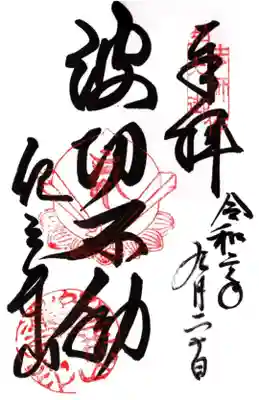 奉拝
令和六年
九月二十日
波切不動
紀三井寺